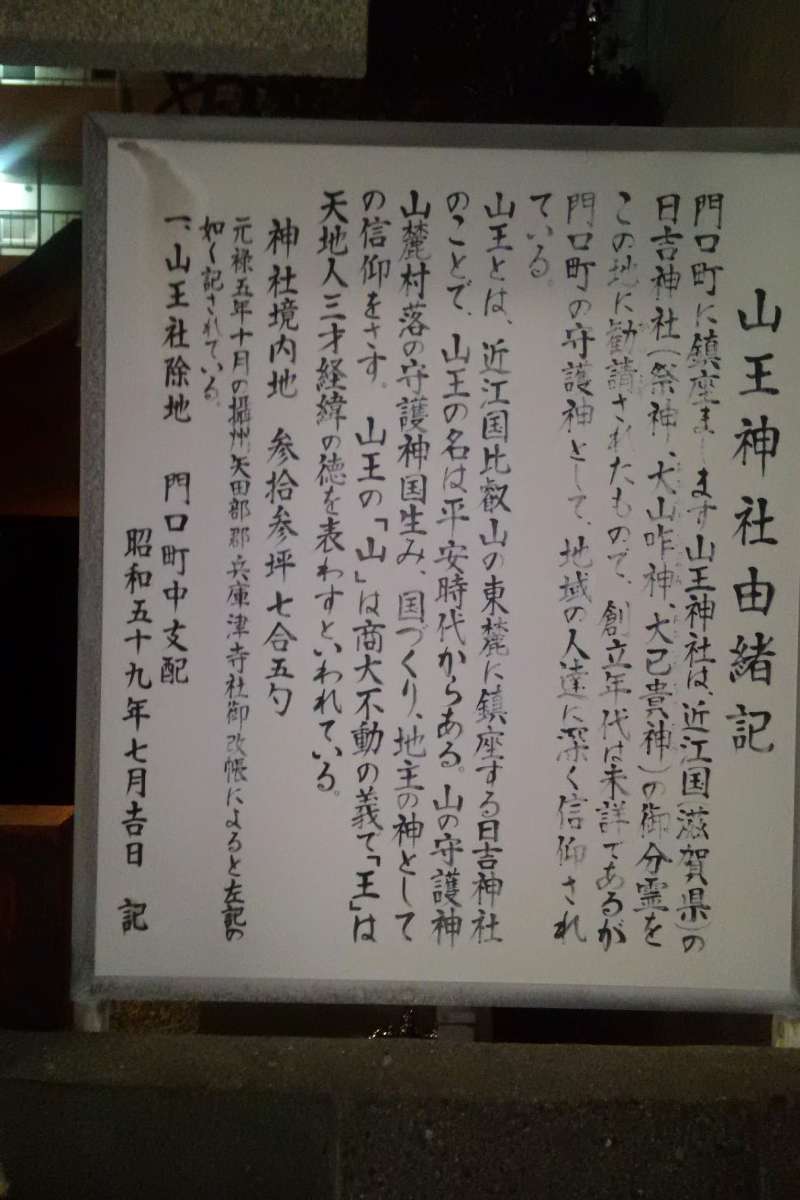 山王神社由緒記
門口町に鎮座まします山王神社は、近江国(滋賀県)の
日吉神社(祭神、大山咋神、大己貴神)の御分霊を
この地に勧請されたもので、創立年代は未詳であるが
門口町の守護神として、地域の人達に深く信仰され
ている。
山王とは、近江国比叡山の東麓に鎮座する日吉神社
のことで、山王の名は平安時代からある。山の守護神
山麓村落の守護神国生み、国づくり、地主の神として
の信仰をさす。山王の「山」は商大不動の義で「王」は
天地人三才経緯の徳を表わすといわれている。
神社境内地 参拾参坪七合五勺
元禄五年十月の攝州矢田部郡兵庫津寺社御改帳によると左記の
如く記されている。
一、山王社除地 門口町中支配
昭和五十九年七月吉日 記